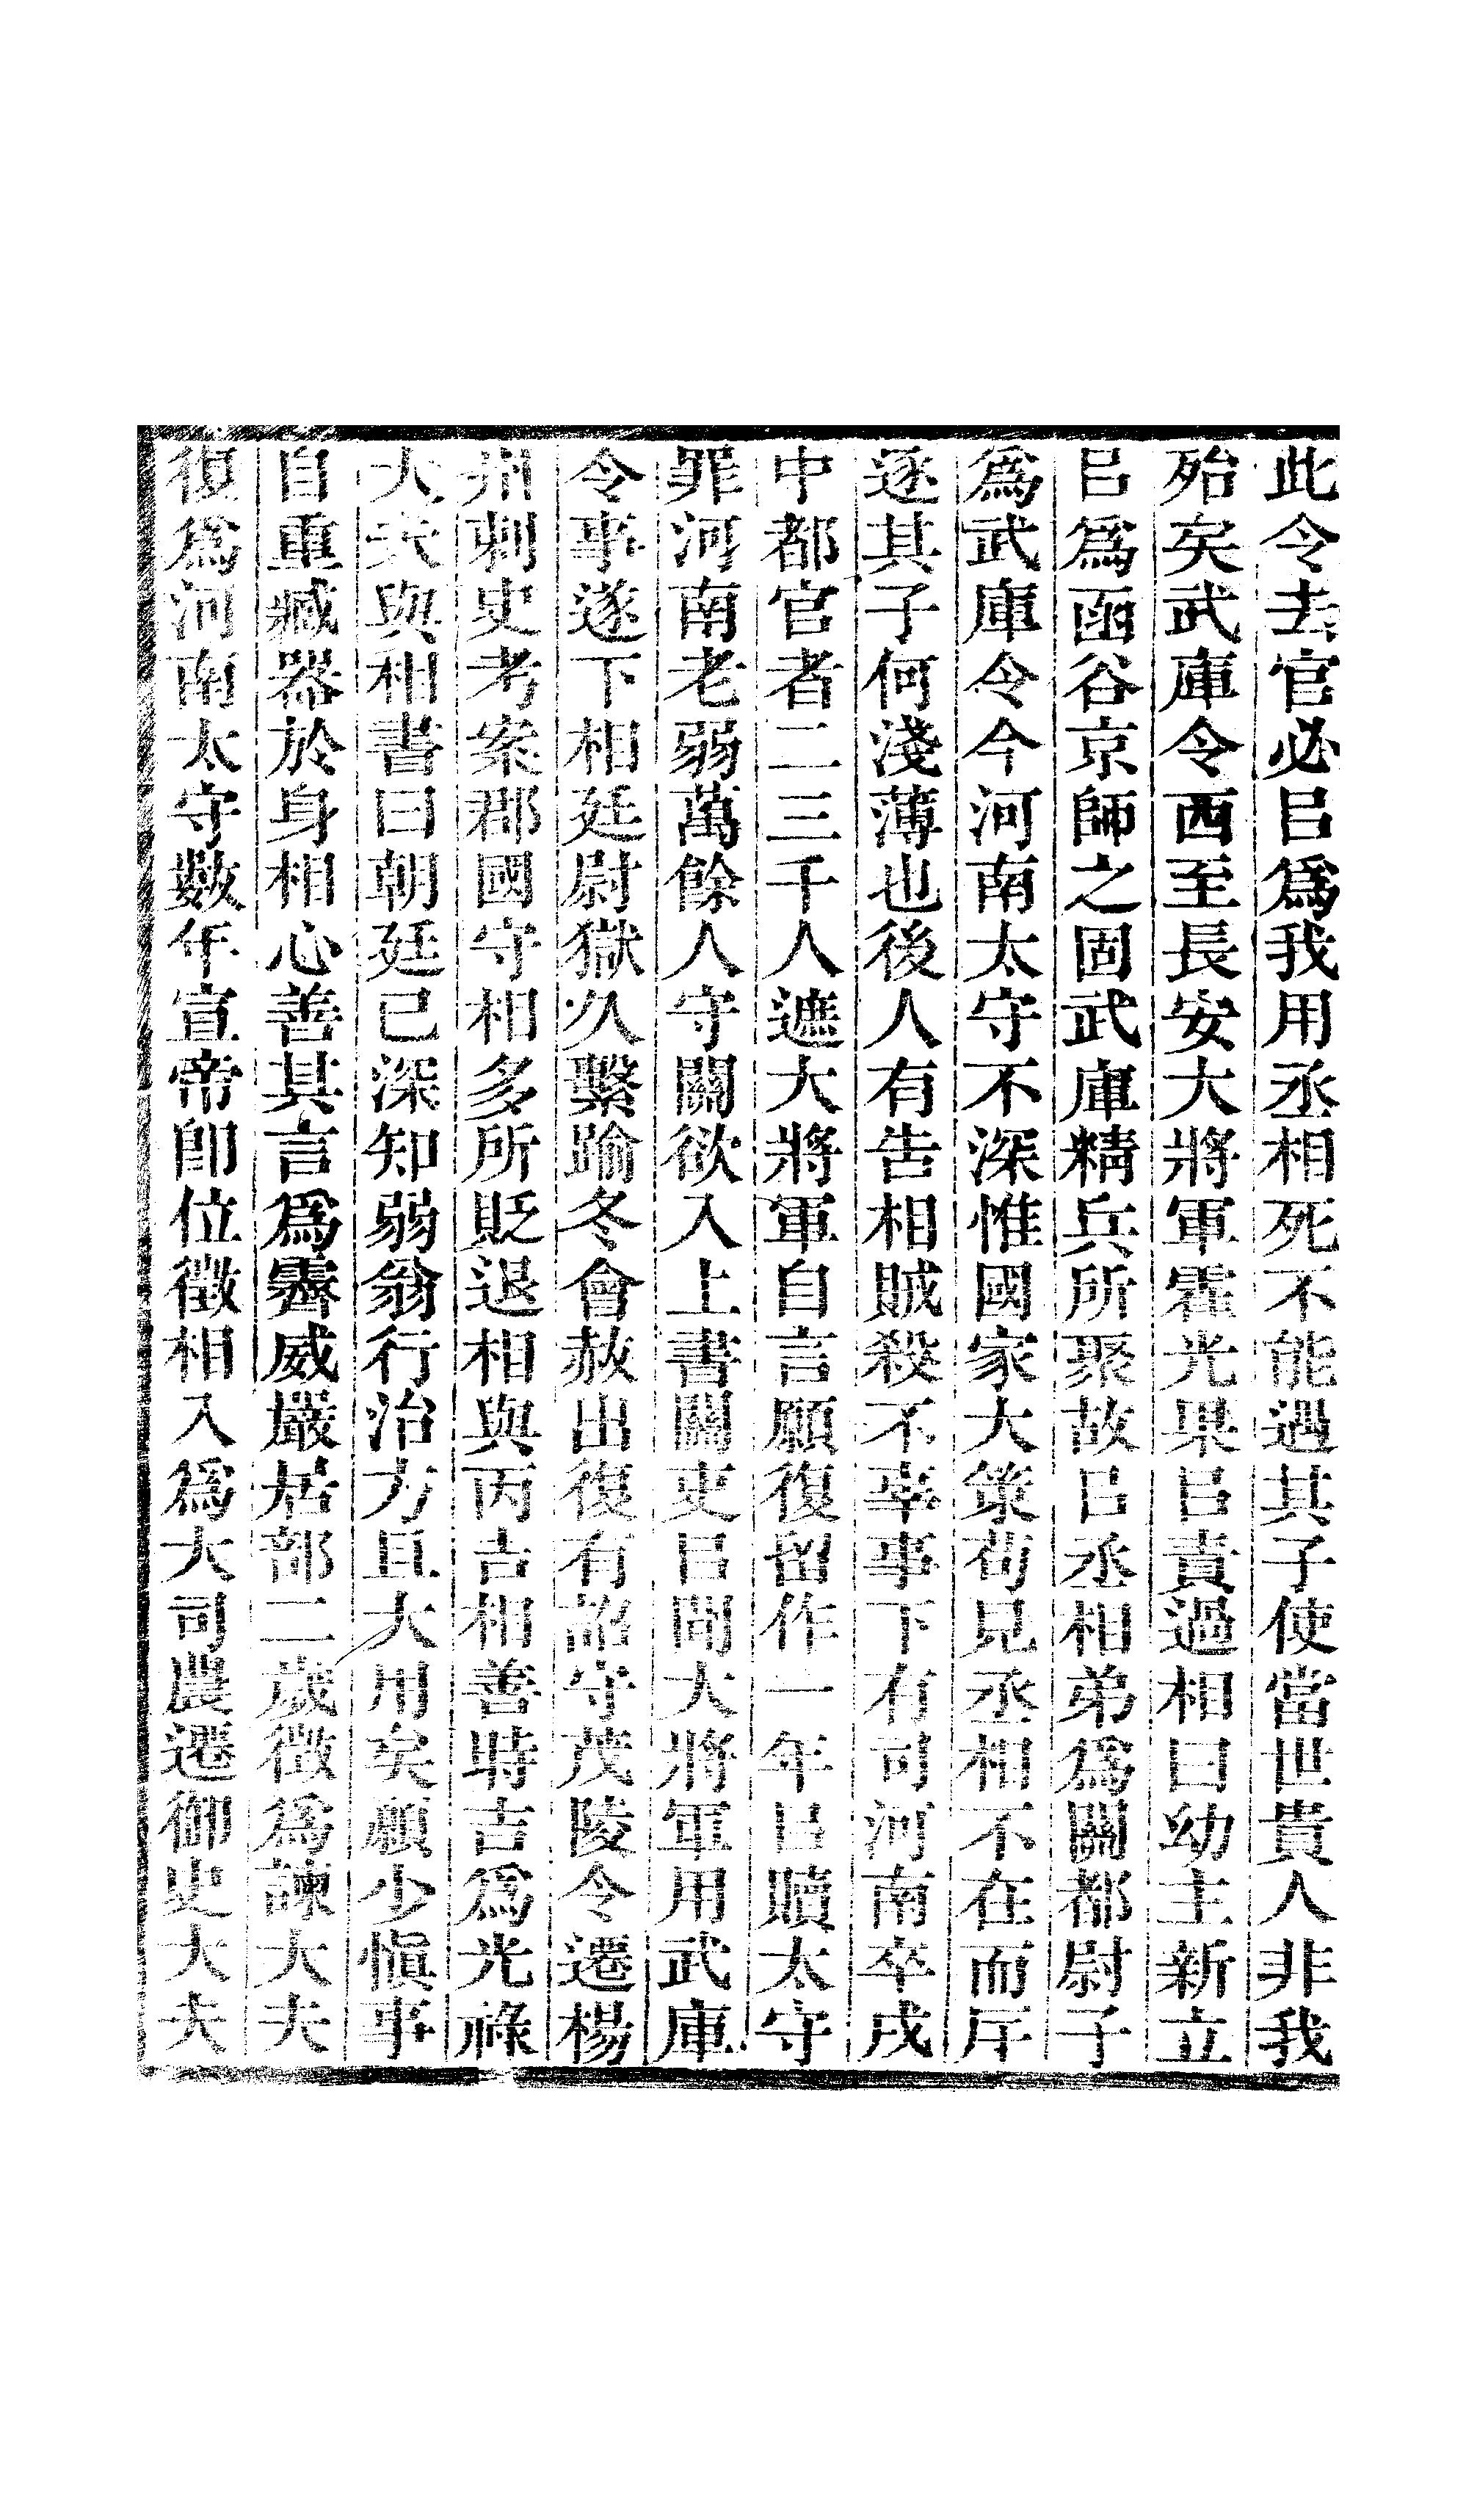 此令去官必㠯爲我用丞相死不能遇其子使當世貴人非我
殆矣武庫令西至長安大將軍霍光果㠯責過相曰幼主新立
㠯爲函谷京師之固武庫精兵所聚故㠯丞相弟爲關都尉子
爲武庫令今河南太守不深惟國家大策苟見丞相不在而斥
逐其子何淺薄也後人有告相賊殺不辜事下有司河南卒戍
中都官者二三千人遮大將軍自言願復留作一年㠯贖太守
罪河南老弱萬餘人守關欲入上書關吏㠯聞大將軍用武庫
令事遂下相廷尉獄久繫踰冬會赦出復有詔守茂陵令遷楊
州刺史考案郡國守相多所貶退相與丙吉相善時吉爲光祿
大夫與相書曰朝廷已深知弱翁行治方且大用矣願少愼事
自重臧器於身相心善其言爲霽威嚴居部二歲徵爲諫大夫
復爲河南太守數年宣帝卽位徵相入爲大司農遷御史大夫